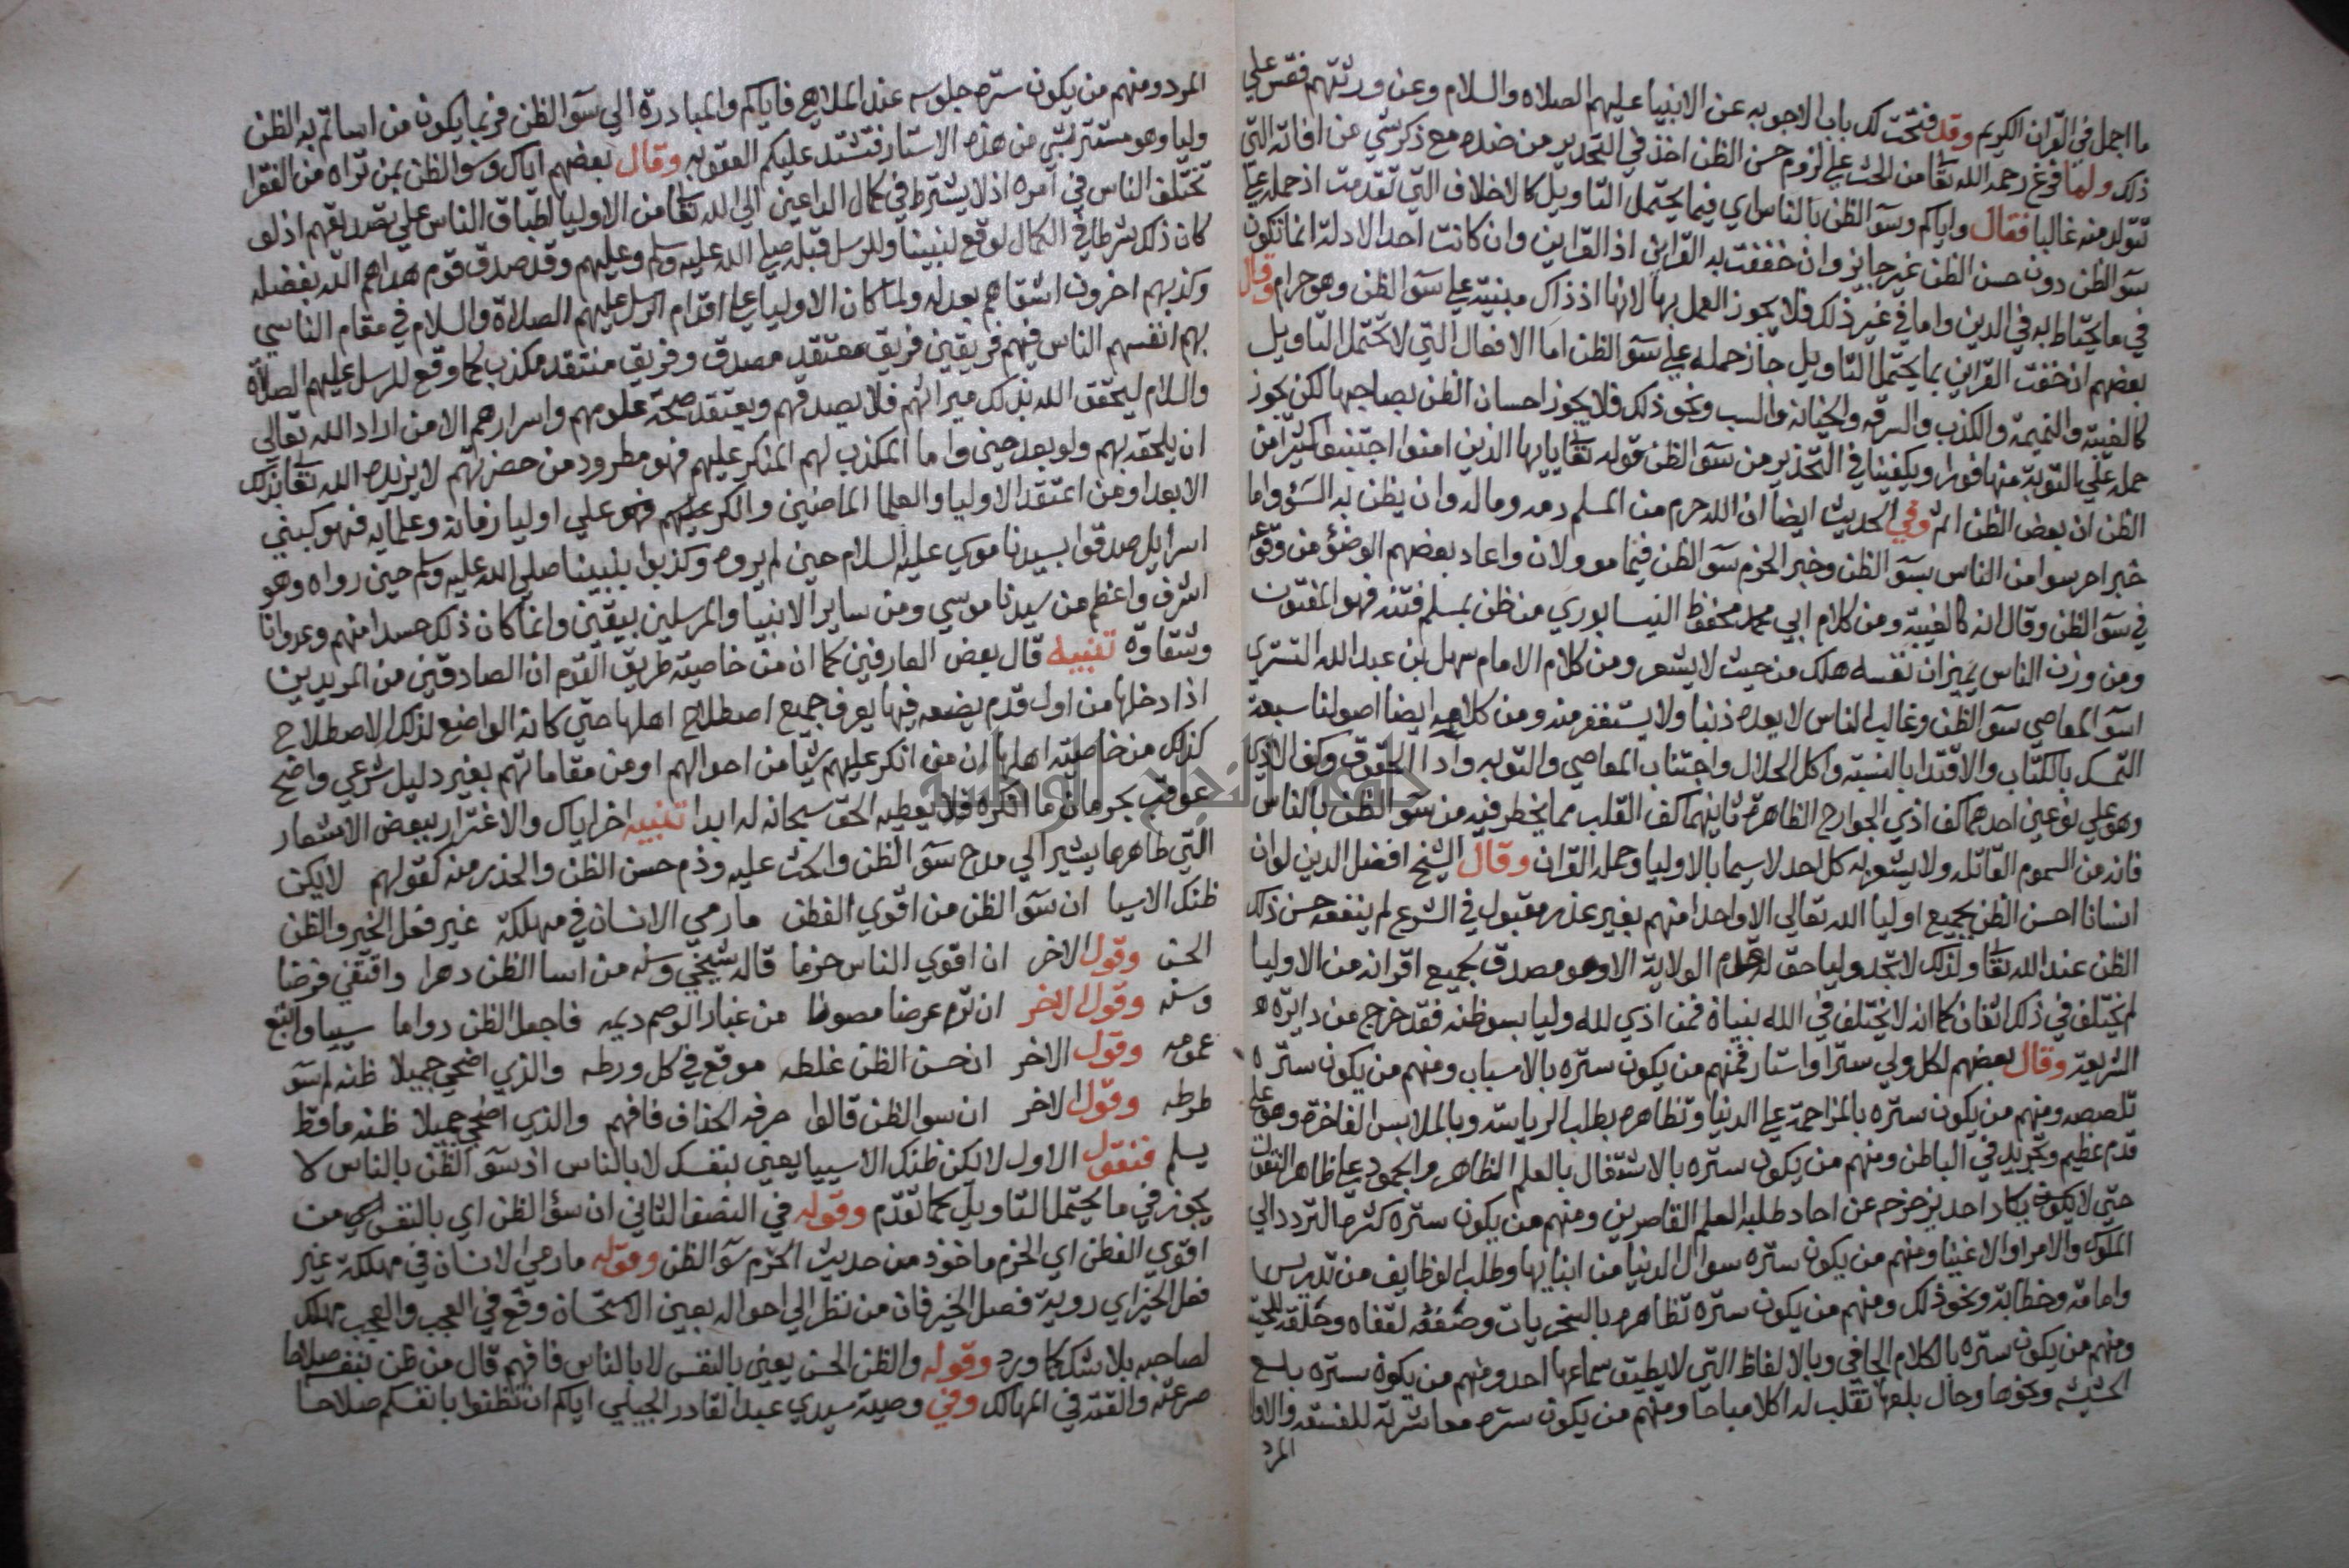 ما اجمل في القران الكريم وقد فتحت لك باب الاجوبه عن الانبيا عليهم الصلاه والسلام وعن ورثتهم فقس علي
ذلك ولما فرغ رحمه الله تعا من الحث علي لزوم حسن الظن اخذ في التحذير من ضده مع ذكر شي من افاته التي
تتولد منه غالبا فقال واياكم وسو الظن بالناس اي فيما يحتمل التاويل كالاخلاف التي تقدمت اذ حمله علي
سو الظن دون حسن الظن غير جايز وان خففت به القراين اذ القراين وان كانت احد الادلة انما تكون
في ما يحتاط به في الدين واما في غير ذلك فلا يجوز العمل بها لانها اذ ذاك مبنية علي سو الظن وهو حرام وقال
بعضهم ان خفت القراين بما يحتمل التاويل جاز حمله علي سو الظن اما الافعال التي لا تحتمل التاويل
كالغيبة والنميمة والكذب والسرقه والخيانه والسب ونحو ذلك فلا يجوز احسان الظن بصاحبها لكن يجوز
حمله علي التوبة منها فورا ويكفينا في التحذير من سو الظن قوله تعا يايها الذين امنوا اجتنبوا كثيرا من
الظن ان بعض الظن اثم وفي الحديث ايضا ان الله حرم من المسلم دمه وماله وان يظن به السؤ واما
خبر احرسوا من الناس بسو الظن وخبر الحزم سو الظن فيهما مو ولان واعاد بعضهم الوضؤ من وقوعه
في سو الظن وقال انه كالغيبة ومن كلام ابي محمد محفوظ النيسابوري من ظن بمسلم فتنة فهو المفتون
ومن وزن الناس بميزان نفسه هلك من حيث لا يشعر ومن كلام الامام سهل بن عبد الله التستري
اسو المعاصي سو الظن وغالب الناس لا يعده ذنبا ولا يستغفر منه ومن كلامه ايضا اصولنا سبعة
التمسك بالكتاب والاقتدا بالسنة واكل الحلال واجتناب المعاصي والتوبه وادا الحقوق وكف الاذي
وهو علي نوعين احدهما كف اذي الجوارح الظاهرة ثانيهما كف القلب مما يخطر فيه من سو الظن بالناس
فانه من السموم القاتله ولا يشعر به كل احد لاسيما بالاوليا وحملة القران وقال الشيخ افضل الدين لو ان
انسانا احسن الظن بجميع اوليا الله تعالي الا واحدا منهم بغير عذر مقبول في الشرع لم ينفعه حسن ذلك
الظن عند الله تعا ولذلك لا تجد وليا حق له قدم الولاية الا وهو مصدق بجميع اقرانه من الاوليا
لم يختلف في ذلك اثنان كما انه لا يختلف في الله نبيان فمن اذي لله وليا بسو ظنه فقد خرج من دايرة
الشريعة وقال بعضهم لكل ولي سترا واستار فمنهم من يكون ستره بالاسباب ومنهم من يكون ستره
تلصصه ومنهم من يكون ستره بالمزاحمة علي الدنيا وتظاهره بطلب الرياسة وبالملابس الفاخرة وهو علي
قدم عظيم وتجريد في الباطن ومنهم من يكون ستره بالاشتغال بالعلم الظاهر والجمود علي ظاهر النقول
حتي لا يكاد احد يزحزحه عن احاد طلبة العلم القاصرين ومنهم من يكون ستره كثرة التردد الي
الملوك والامرا والاغنيا ومنهم من يكون ستره سوال الدنيا من ابنايها وطلب الوظايف من تدريس
وامامة وخطابة ونحو ذلك ومنهم من يكون ستره تظاهره بالسخريات وصفعه لقفاه وحلقه للحيته
ومنهم من يكون ستره بالكلام الجافي وبالالفاظ التي لا يطيق سماعها احد ومنهم من يكون ستره بلع
الحشيشه ونحوها وحال بلعها تقلب له اكلا مباحا ومنهم من يكون ستره معاشرته للفسقه والاولا
المرد
المرد ومنهم من يكون ستره جلوسه عند الملاهي فاياكم والمبادرة الي سو الظن فربما يكون من اساتم به الظن
وليا وهو مستتر بشي من هذه الاستار فتشتد عليكم العقوبه وقال بعضهم اياك وسو الظن بمن تراه من الفقرا
تختلف الناس في امره اذ لا يشترط في كمال الداعين الي الله تعا من الاوليا اطباق الناس علي تصديقهم اذ لو
كان ذلك شرطا في الكمال لوقع لنبينا وللرسل قبله صلي الله عليه وسلم وعليهم وقد صدق قوم هداهم الله بفضله
وكذبهم اخرون اشقاهم بعدله ولما كان الاوليا علي اقدام الرسل عليهم الصلاة والسلام في مقام التاسي
بهم انقسم الناس فيهم فريقين فريق معتقد مصدق وفريق منتقد مكذب كما وقع للرسل عليهم الصلاة
والسلام ليحقق الله بذلك ميراثهم فلا يصدقهم ويعتقد صحة علومهم واسرارهم الا من اراد الله تعالي
ان يلحقه بهم ولو بعد حين واما المكذب لهم المنكر عليهم فهو مطرود من حضرتهم لا يزيده الله تعا بذلك
الا بعدا ومن اعتقد الاوليا والعلما الماضين وانكر علي اوليا زمانه وعلمايه فهو كبني
اسرايل صدقوا بسيدنا موسي عليه السلام حين لم يروه وكذبوا بنبينا صلي الله عليه وسلم حين رواه وهو
اشرف واعظم من سيدنا موسي ومن ساير الانبيا والمرسلين بيقين وانما كان ذلك حسدا منهم وعدوانا
وشقاوة تنبيه قال بعض العارفين كما ان من خاصية طريق القوم ان الصادقين من المريدين
اذا دخلها من اول قدم يضعه فيها يعرف جميع اصطلاح اهلها حتي كانه الواضع لذلك الاصطلاح
كذلك من خاصية اهلها ان من انكر عليهم شيا من احوالهم او من مقاماتهم بغير دليل شرعي واضح
عوقب بحرمان ما انكره فلا يعطيه الحق سبحانه له ابدا تنبيه اخر اياك والاغترار ببعض الاشعار
التي ظاهرها يشير الي مدح سو الظن والحث عليه وذم حسن الظن والحذر منه كقولهم لا يكن
ظنك الا سيا ان سو الظن من اقوي الفطن ما رمي الانسان في مهلكة غير فعل الخير والظن
الحسن وقول الاخر ان اقوي الناس حزما قاله شيخي وسنه من اسا الظن دهرا واقتفي فرضا
وسنه وقول الاخر ان ترم عرضا مصونا من غبار الوصم ديمه فاجعل الظن دواما سييا واتبع
عمومه وقول الاخر ان حسن الظن غلطه موقع في كل ورطه والذي اضحي جميلا ظنه لم يسو
طرطه وقول الاخر ان سو الظن قالوا حرفه الحذاق فافهم والذي اضحي جميلا ظنه ما قط
يسلم فنقول الاول لا يكن ظنك الا سييا يعني بنفسك لا بالناس اذ سو الظن بالناس لا
يجوز في ما يحتمل التاويل كما تقدم وقوله في النصف الثاني ان سؤ الظن اي بالنفس من
اقوي الفطن اي الحزم ماخوذ من حديث الحزم سو الظن وقوله ما رمي الانسان في مهلكة غير
فعل الخير اي روية فعل الخير فان من نظر الي احواله بعين الاستحسان وقع في العجب والعجب مهلك
لصاحبه بلا شك كما ورد وقوله والظن الحسن يعني بالنفس لا بالناس فافهم قال من ظن بنفسه صلاحا
صرعته والقته في المهالك وفي وصية سيدي عبد القادر الجيلي اياكم ان تظنوا بانفسكم صلاحا